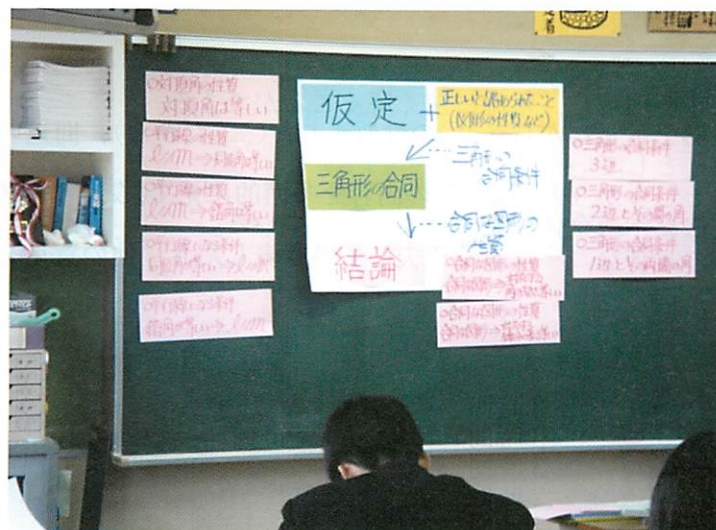 ○対頂角の性質
対頂角は等しい
○平行線の性質
l//m⇒同位角は等しい
○平行線の性質
l//m⇒錯角は等しい
○平行線になる条件
同位角が等しい⇒l//m
○平行線になる条件
錯角が等しい⇒l//m
仮定
+
正しいと認められること
(図形の性質など)
三角形の
合同条件
三角形の合同
合同な図形の
性質
結論
○合同な図形の性質
○合同な図形の性質
○三角形の合同条件
3辺
○三角形の合同条件
2辺とその間の角
○三角形の合同条件
1辺とその両端の角